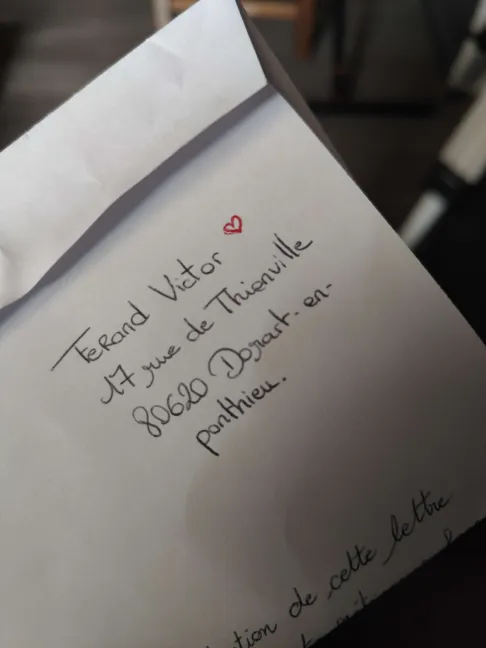 Ferand Victor
17 rue de Thionville
80620 Domart-en-
ponthieu.
de cette lettre